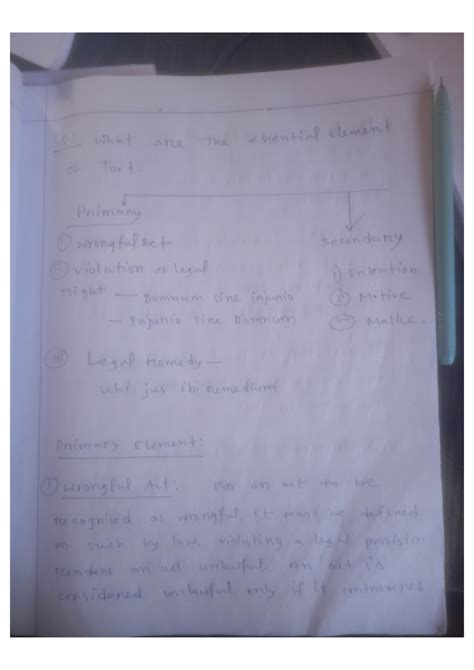 5. What are the essential element
of Tort.
Primary
Secondary
(i) Wrongful Act
(ii) Violation of legal
right — Damnum sine injunio
— Injunio sine Damnum
i) Intention
(ii) Motive
(iii) Malice.
(iii) Legal remedy —
ubi jus ibi remedium
Primary Element:
(i) Wrongful Act: For an act to be
recognised as wrongful, it must be defined
as such by law. violating a legal provision
renders an act unlawful. An act is
considered unlawful only if it contravenes